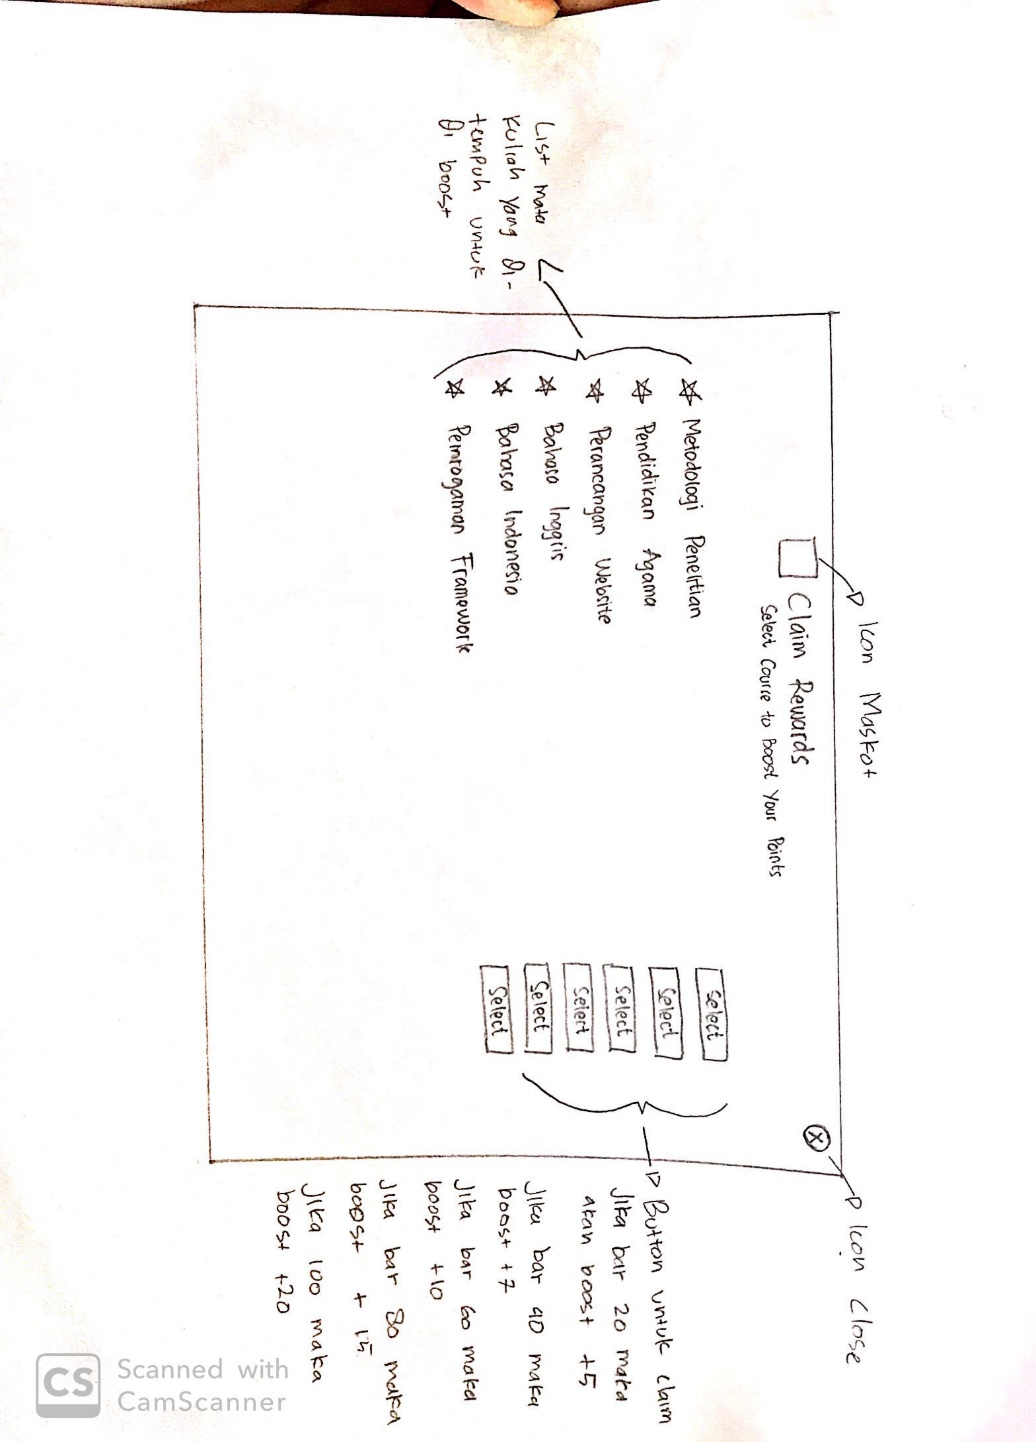 Icon Maskot
Icon Close
Claim Rewards
Select Course to Boost Your Points
X
List mata
Kuliah yang di-
tempuh untuk
di boost
Metodologi Penelitian
Pendidikan Agama
Perancangan Website
Bahasa Inggris
Bahasa Indonesia
Pemrogaman Framework
Select
Select
Select
Select
Select
Select
Button untuk claim
Jika bar 20 maka
akan boost +5
Jika bar 40 maka
boost +7
Jika bar 60 maka
boost +10
Jika bar 80 maka
boost + 15
Jika 100 maka
boost +20
CS
Scanned with
CamScanner